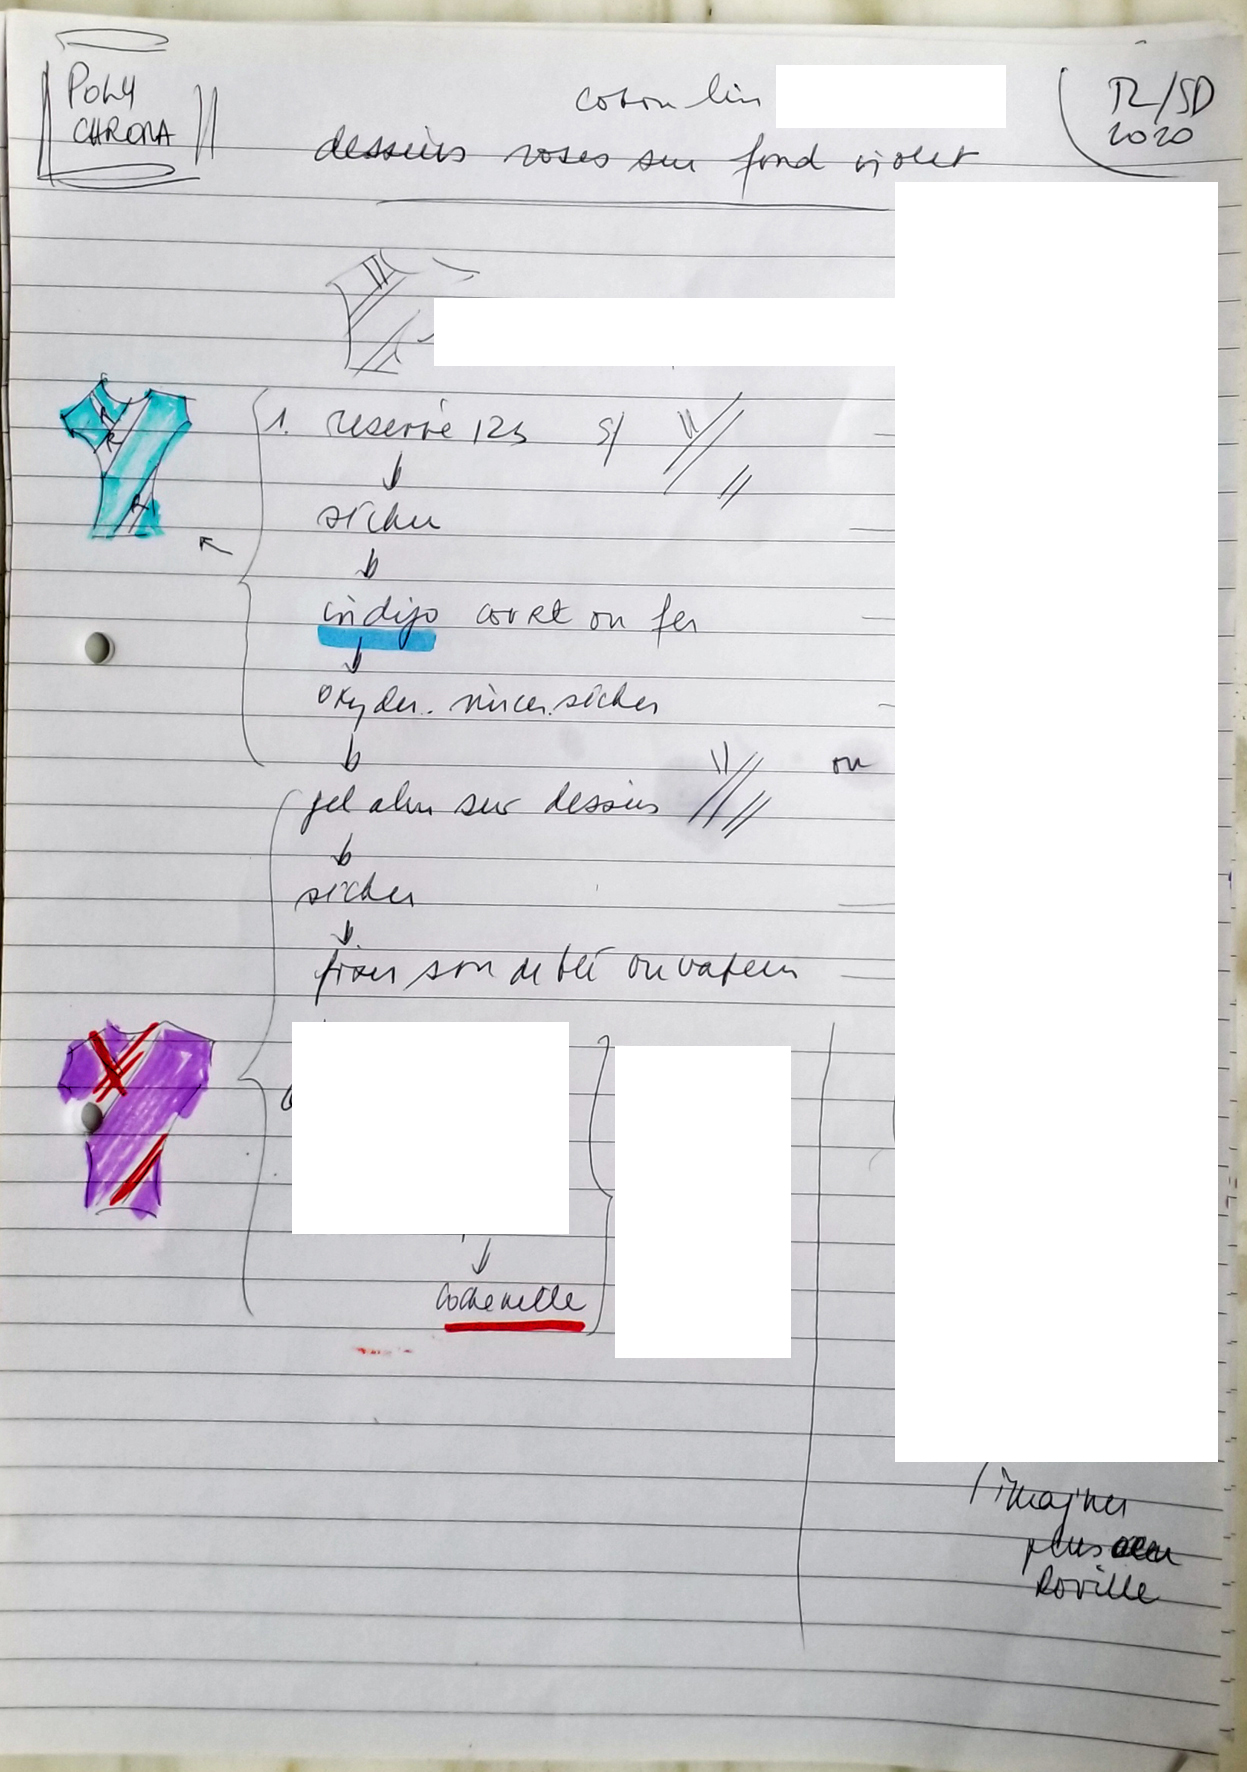 POLY
CHROMA
coton lin
TZ/SD
2020
dessins roses sur fond violet
1. reserve 123 s/
sécher
indigo court ou fer
oxyder. rincer. sécher
ou
gel alun sur dessins
sécher
fixer son de blé ou vapeur
cochenille
imaginer
plus
Roville
R
R
R